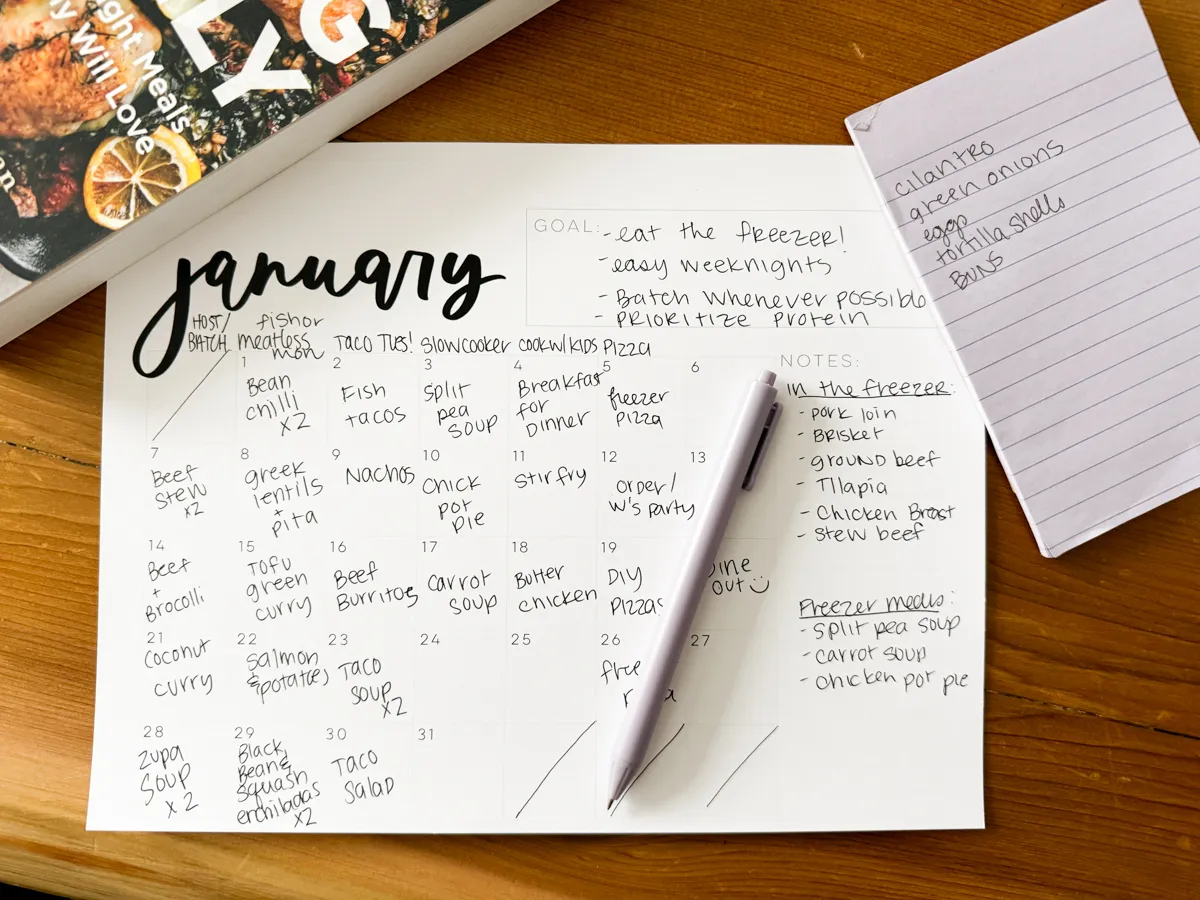 G
LY
ght Meals
y Will Love
an
cilantro
green onions
eggs
tortilla shells
BUNS
january
GOAL:
- eat the freezer!
- easy weeknights
- Batch whenever possible
- PRIORITIZE PROTEIN
HOST/
BATCH
fish or
meatless
mon
TACO TUES!
Slowcooker
cook w/ KIDS
PIZZA
1
Bean
chilli
x2
2
Fish
tacos
3
Split
pea
soup
4
Breakfast
for
Dinner
5
freezer
pizza
6
7
Beef
stew
x2
8
greek
lentils
+
pita
9
Nachos
10
Chick
pot
pie
11
Stir fry
12
order/
W's party
13
14
Beef
+
Brocolli
15
TOFU
green
curry
16
Beef
Burritos
17
Carrot
Soup
18
Butter
chicken
19
DIY
PIZZAS
Dine
out
21
Coconut
curry
22
Salmon
& potatoes
23
Taco
Soup
x2
24
25
26
free
27
28
Zupa
Soup
x2
29
Black
Bean &
Squash
enchiladas
x2
30
Taco
Salad
31
NOTES:
In the freezer:
- pork loin
- Brisket
- ground beef
- Tilapia
- Chicken Breast
- Stew beef
Freezer meals:
- Split pea soup
- carrot soup
- chicken pot pie